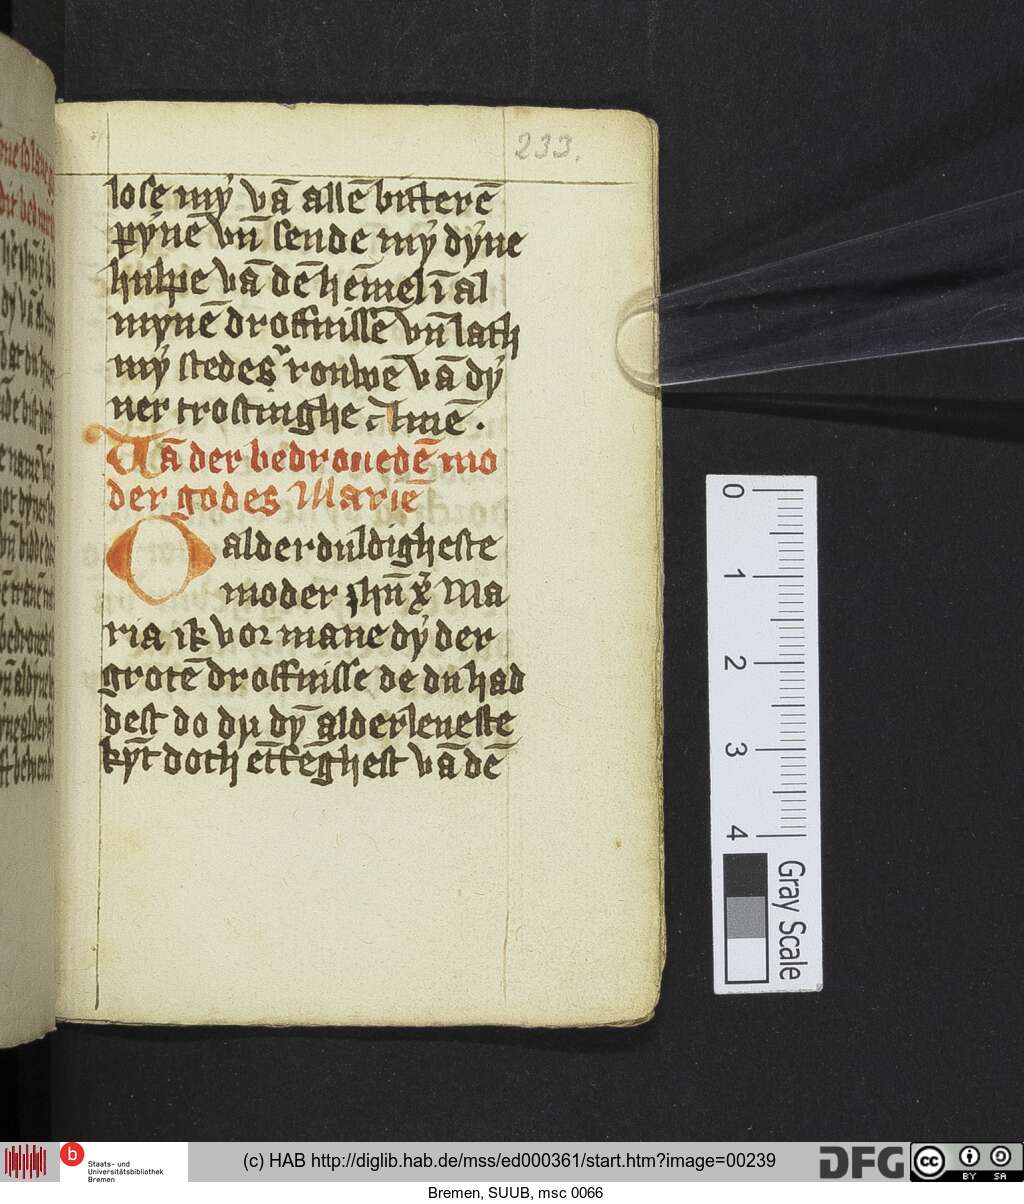 233.
lose mẏ vā allē bitterē
pẏnē vn̄ sende mẏ dẏne
hulpe vā dē hēmel ī al
mynē droffnissē vn̄ lath
mẏ stedes rouwē vā dẏ
ner trostinghe Amē .
Vā der bedrouedē mo
der godes Mariē
O alderduldigheste
moder ihū xp̄i Ma
ria ik vor mane dẏ der
grotē droffnisse de du had
dest do du dȳ alderleueste
kȳt doch ētfēghest vā dē
0
1
2
3
4
Gray Scale
b
Staats- und
Universitätsbibliothek
Bremen
(c) HAB http://diglib.hab.de/mss/ed000361/start.htm?image=00239
DFG
cc
BY SA
Bremen, SUUB, msc 0066